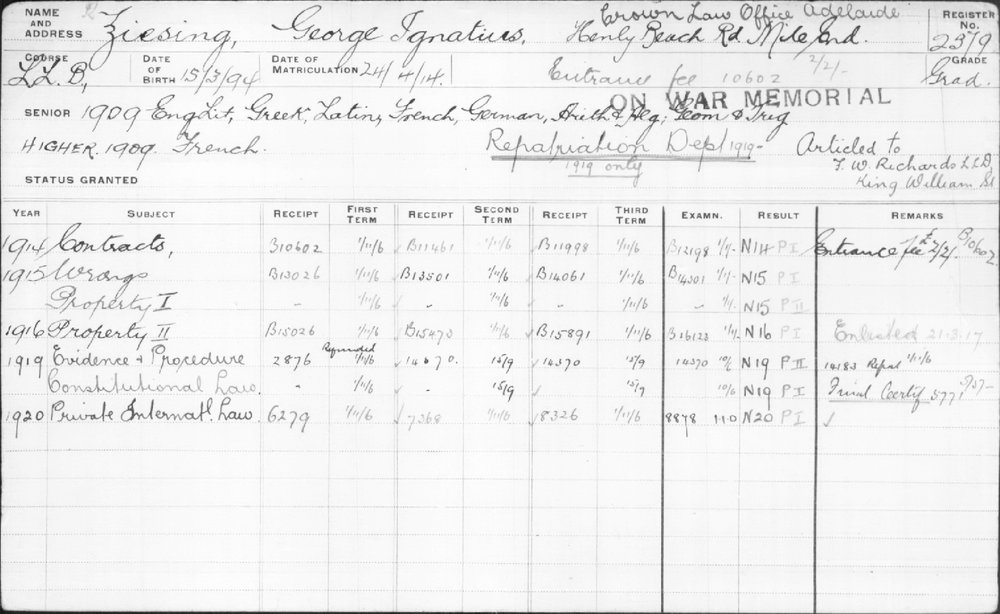 NAME AND ADDRESS Ziesing, George Ignatius, Crown Law Office Adelaide
Henly Beach Rd. Mile End.
REGISTER No. 2379
COURSE LL.B, DATE OF BIRTH 15/3/94 DATE OF MATRICULATION 24/4/14. Entrance fee 10602 2/2/- GRADE Grad.
ON WAR MEMORIAL
SENIOR 1909 Eng Lit, Greek, Latin, French, German, Arith & Alg; Geom & Trig
HIGHER. 1909. French. Repatriation Dept 1919- Articled to
1919 only F. W. Richards LL.D,
STATUS GRANTED King William St.
YEAR SUBJECT RECEIPT FIRST TERM RECEIPT SECOND TERM RECEIPT THIRD TERM EXAMN. RESULT REMARKS
1914 Contracts, B10602 1/11/6 B11461 1/11/6 B11998 1/11/6 B12198 1/1/- N14 PI Entrance fee £2/2/. B10602
1915 Wrongs B13026 1/11/6 B13501 1/11/6 B14061 1/11/6 B14301 1/1/- N15 PI
Property I 1/11/6 - 1/11/6 - 1/11/6 - 1/1. N15 PII
1916 Property II B15026 1/11/6 B15473 1/11/6 B15891 1/11/6 B16123 1/1. N16 PI Enlisted 21.3.17
Refunded
1919 Evidence & Procedure 2876 1/11/6 14370. 15/9 14370 15/9 14370 10/6 N19 PII 14183 Repat 1/11/6
Constitutional Law. - 1/11/6 - 15/9 15/9 10/6 N19 PI Final Certif 5771
1920 Private Internatl. Law. 6279 1/11/6 7368 1/11/6 8326 1/11/6 8878 110 N20 PI ✓